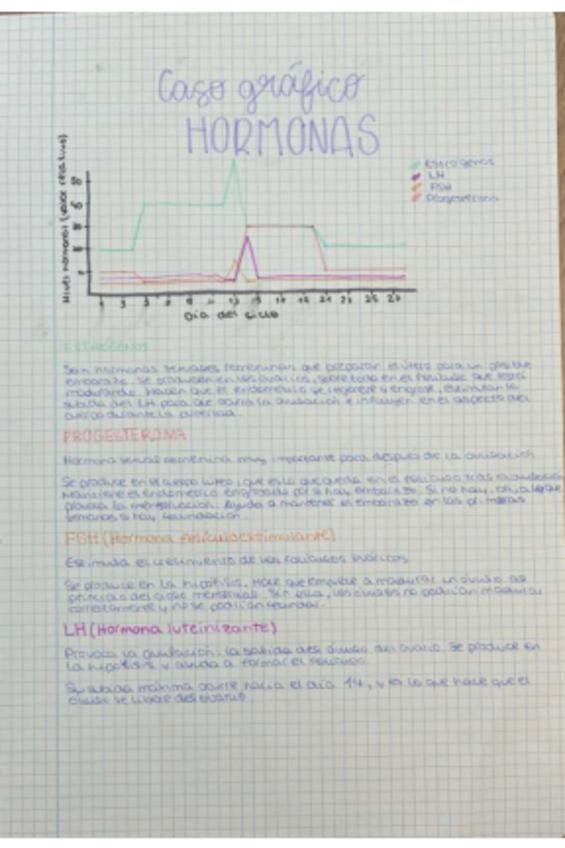 Caso gráfico
HORMONAS
Niveles hormonal (valor relativo)
Estrógenos
LH
FSH
Progesterona
Día del ciclo
ESTRÓGENOS
Son hormonas sexuales femeninan que preparan el útero para un posible
embarazo. Se producen en los ovarios, sobre todo en el folículo que está
madurando. Hacen que el endometrio se regenere y engrose, estimulan la
subida del LH para que ocurra la ovulación e influyen en el aspecto del
cuerpo durante la pubertad.
PROGESTERONA
Hormona sexual femenina muy importante para después de la ovulación
Se produce en el cuerpo lúteo, que es lo que queda en el folículo tras la ovulación
Mantiene el endometrio engrosado por si hay embarazo. Si no hay,
provoca la menstruación. Ayuda a mantener el embarazo en las primeras
semanas si hay fecundación.
FSH (Hormona foliculoestimulante)
Estimula el crecimiento de los folículos ováricos.
Se produce en la hipófisis. Hace que empiece a madurar un óvulo al
principio del ciclo menstrual. Sin ella, los óvulos no podrían madurar
correctamente y no se podrían fecundar.
LH (Hormona luteinizante)
Provoca la ovulación: la salida del óvulo del ovario. Se produce en
la hipófisis y ayuda a formar el folículo.
Su subida máxima ocurre hacia el día 14, y es lo que hace que el
óvulo se libere del ovario.